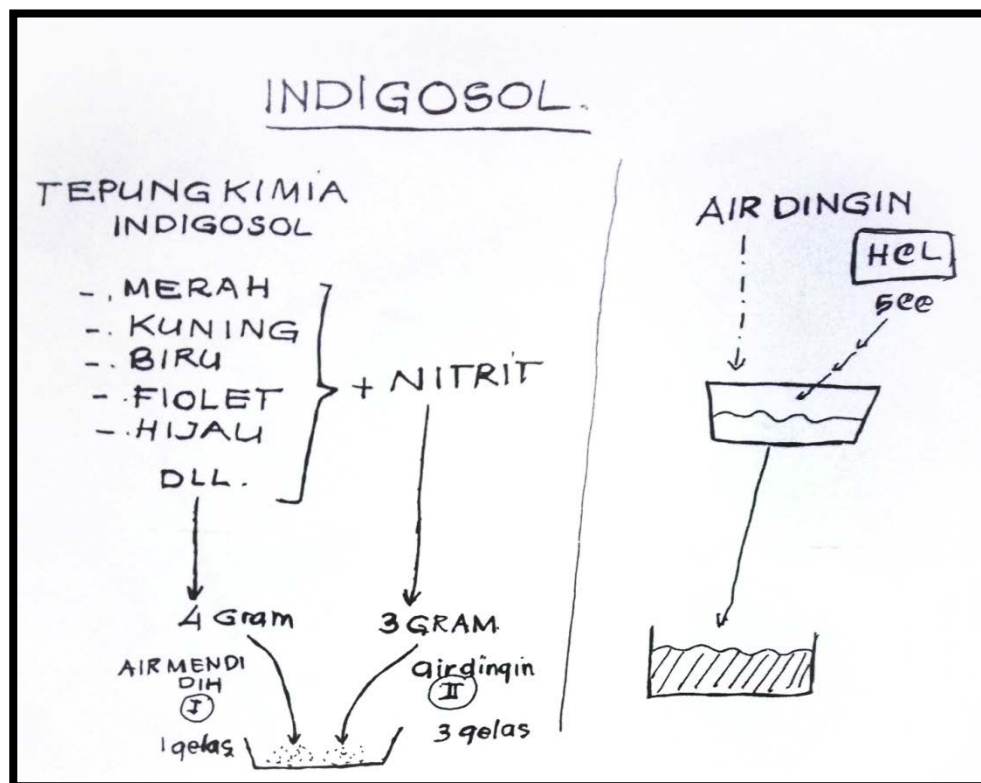 INDIGOSOL.
TEPUNG KIMIA
INDIGOSOL
-. MERAH
-. KUNING
-. BIRU
-. FIOLET
-. HIJAU
DLL.
+ NITRIT
4 Gram
3 GRAM
AIR MENDI
DIH
I
1 gelas
air dingin
II
3 gelas
AIR DINGIN
HCL
5CC